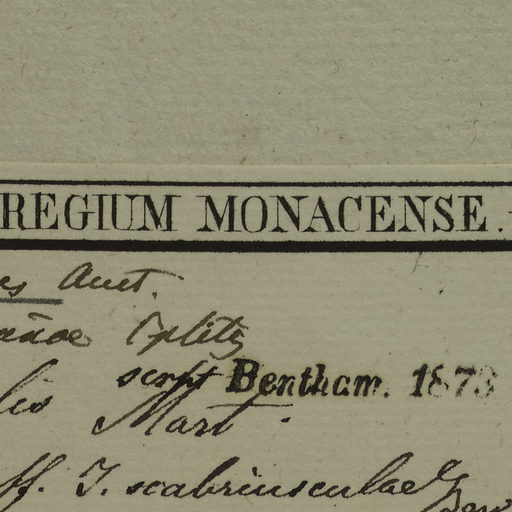 REGIUM MONACENSE.
Auct.
scrpt Bentham. 1873
lis Mart.
ff. T. scabriusculae